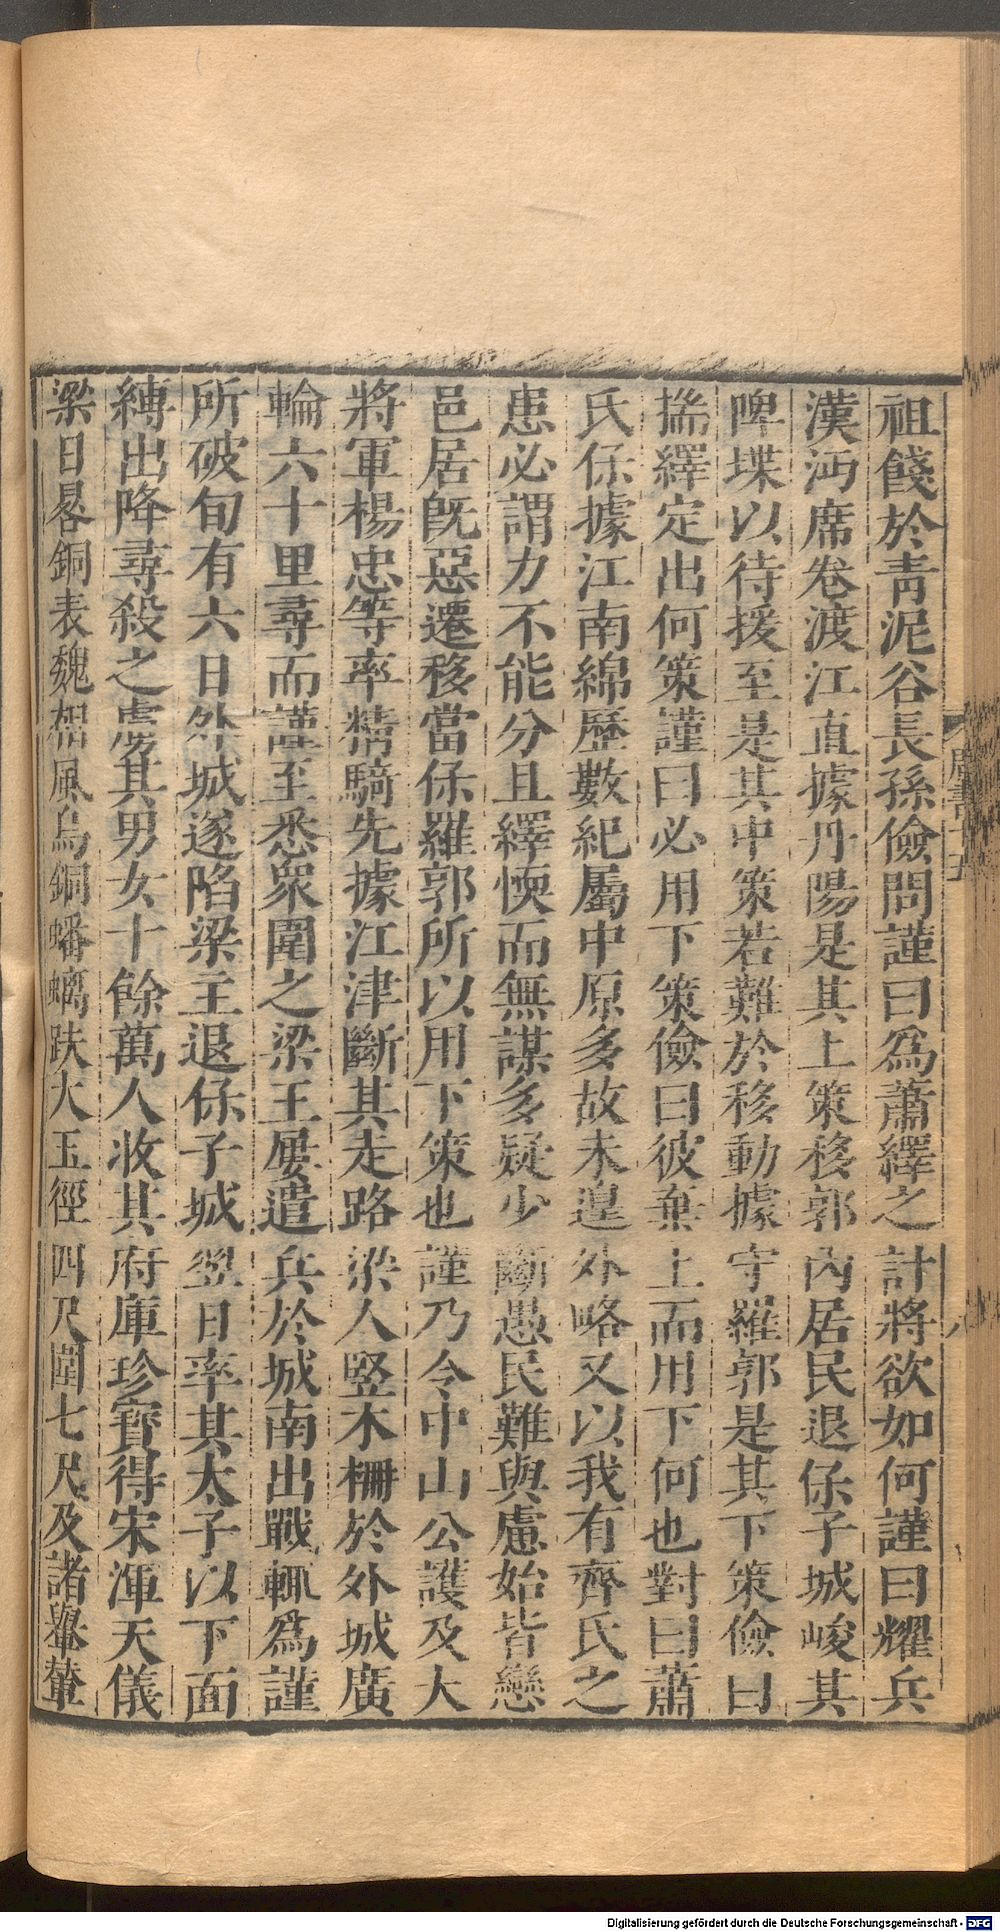 祖餞於青泥谷長孫儉問謹曰爲蕭繹之計將欲如何謹曰耀兵
漢沔席卷渡江直據丹陽是其上策移郭內居民退保子城峻其
陴堞以待援至是其中策若難於移動據守羅郭是其下策儉曰
揣繹定出何策謹曰必用下策儉曰彼棄上而用下何也對曰蕭
氏保據江南綿歷數紀屬中原多故未遑外略又以我有齊氏之
患必謂力不能分且繹愞而無謀多疑少斷愚民難與慮始皆戀
邑居既惡遷移當保羅郭所以用下策也謹乃令中山公護及大
將軍楊忠等率精騎先據江津斷其走路梁人竪木柵於外城廣
輪六十里尋而謹至悉衆圍之梁王屢遣兵於城南出戰輒爲謹
所破旬有六日外城遂陷梁主退保子城翌日率其太子以下面
縛出降尋殺之虜其男女十餘萬人收其府庫珍寶得宋渾天儀
梁日晷銅表魏相風烏銅蟠螭趺大玉徑四尺圍七尺及諸轝輦
周書十五
八
Digitalisierung gefördert durch die Deutsche Forschungsgemeinschaft - DFG